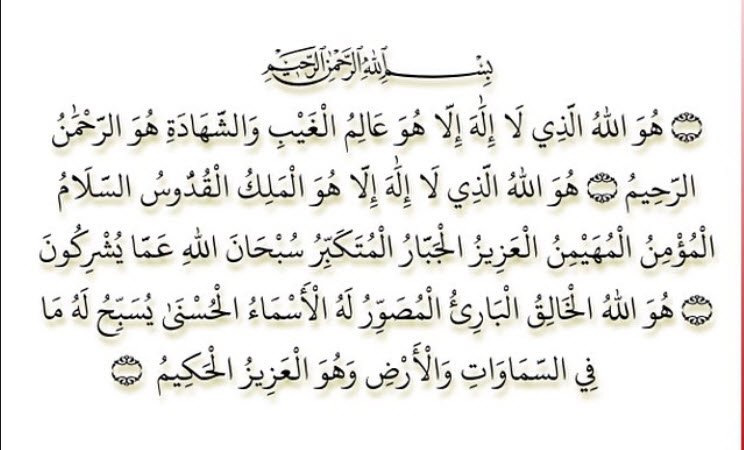 بِسْمِ اللهِ الرَّحْمٰنِ الرَّحِيْمِ
۝ هُوَ اللهُ الَّذِي لَا إِلٰهَ إِلَّا هُوَ عَالِمُ الْغَيْبِ وَالشَّهَادَةِ هُوَ الرَّحْمٰنُ
الرَّحِيمُ ۝ هُوَ اللهُ الَّذِي لَا إِلٰهَ إِلَّا هُوَ الْمَلِكُ الْقُدُّوسُ السَّلَامُ
الْمُؤْمِنُ الْمُهَيْمِنُ الْعَزِيزُ الْجَبَّارُ الْمُتَكَبِّرُ سُبْحَانَ اللهِ عَمَّا يُشْرِكُونَ
۝ هُوَ اللهُ الْخَالِقُ الْبَارِئُ الْمُصَوِّرُ لَهُ الْأَسْمَاءُ الْحُسْنَىٰ يُسَبِّحُ لَهُ مَا
فِي السَّمَاوَاتِ وَالْأَرْضِ وَهُوَ الْعَزِيزُ الْحَكِيمُ ۝